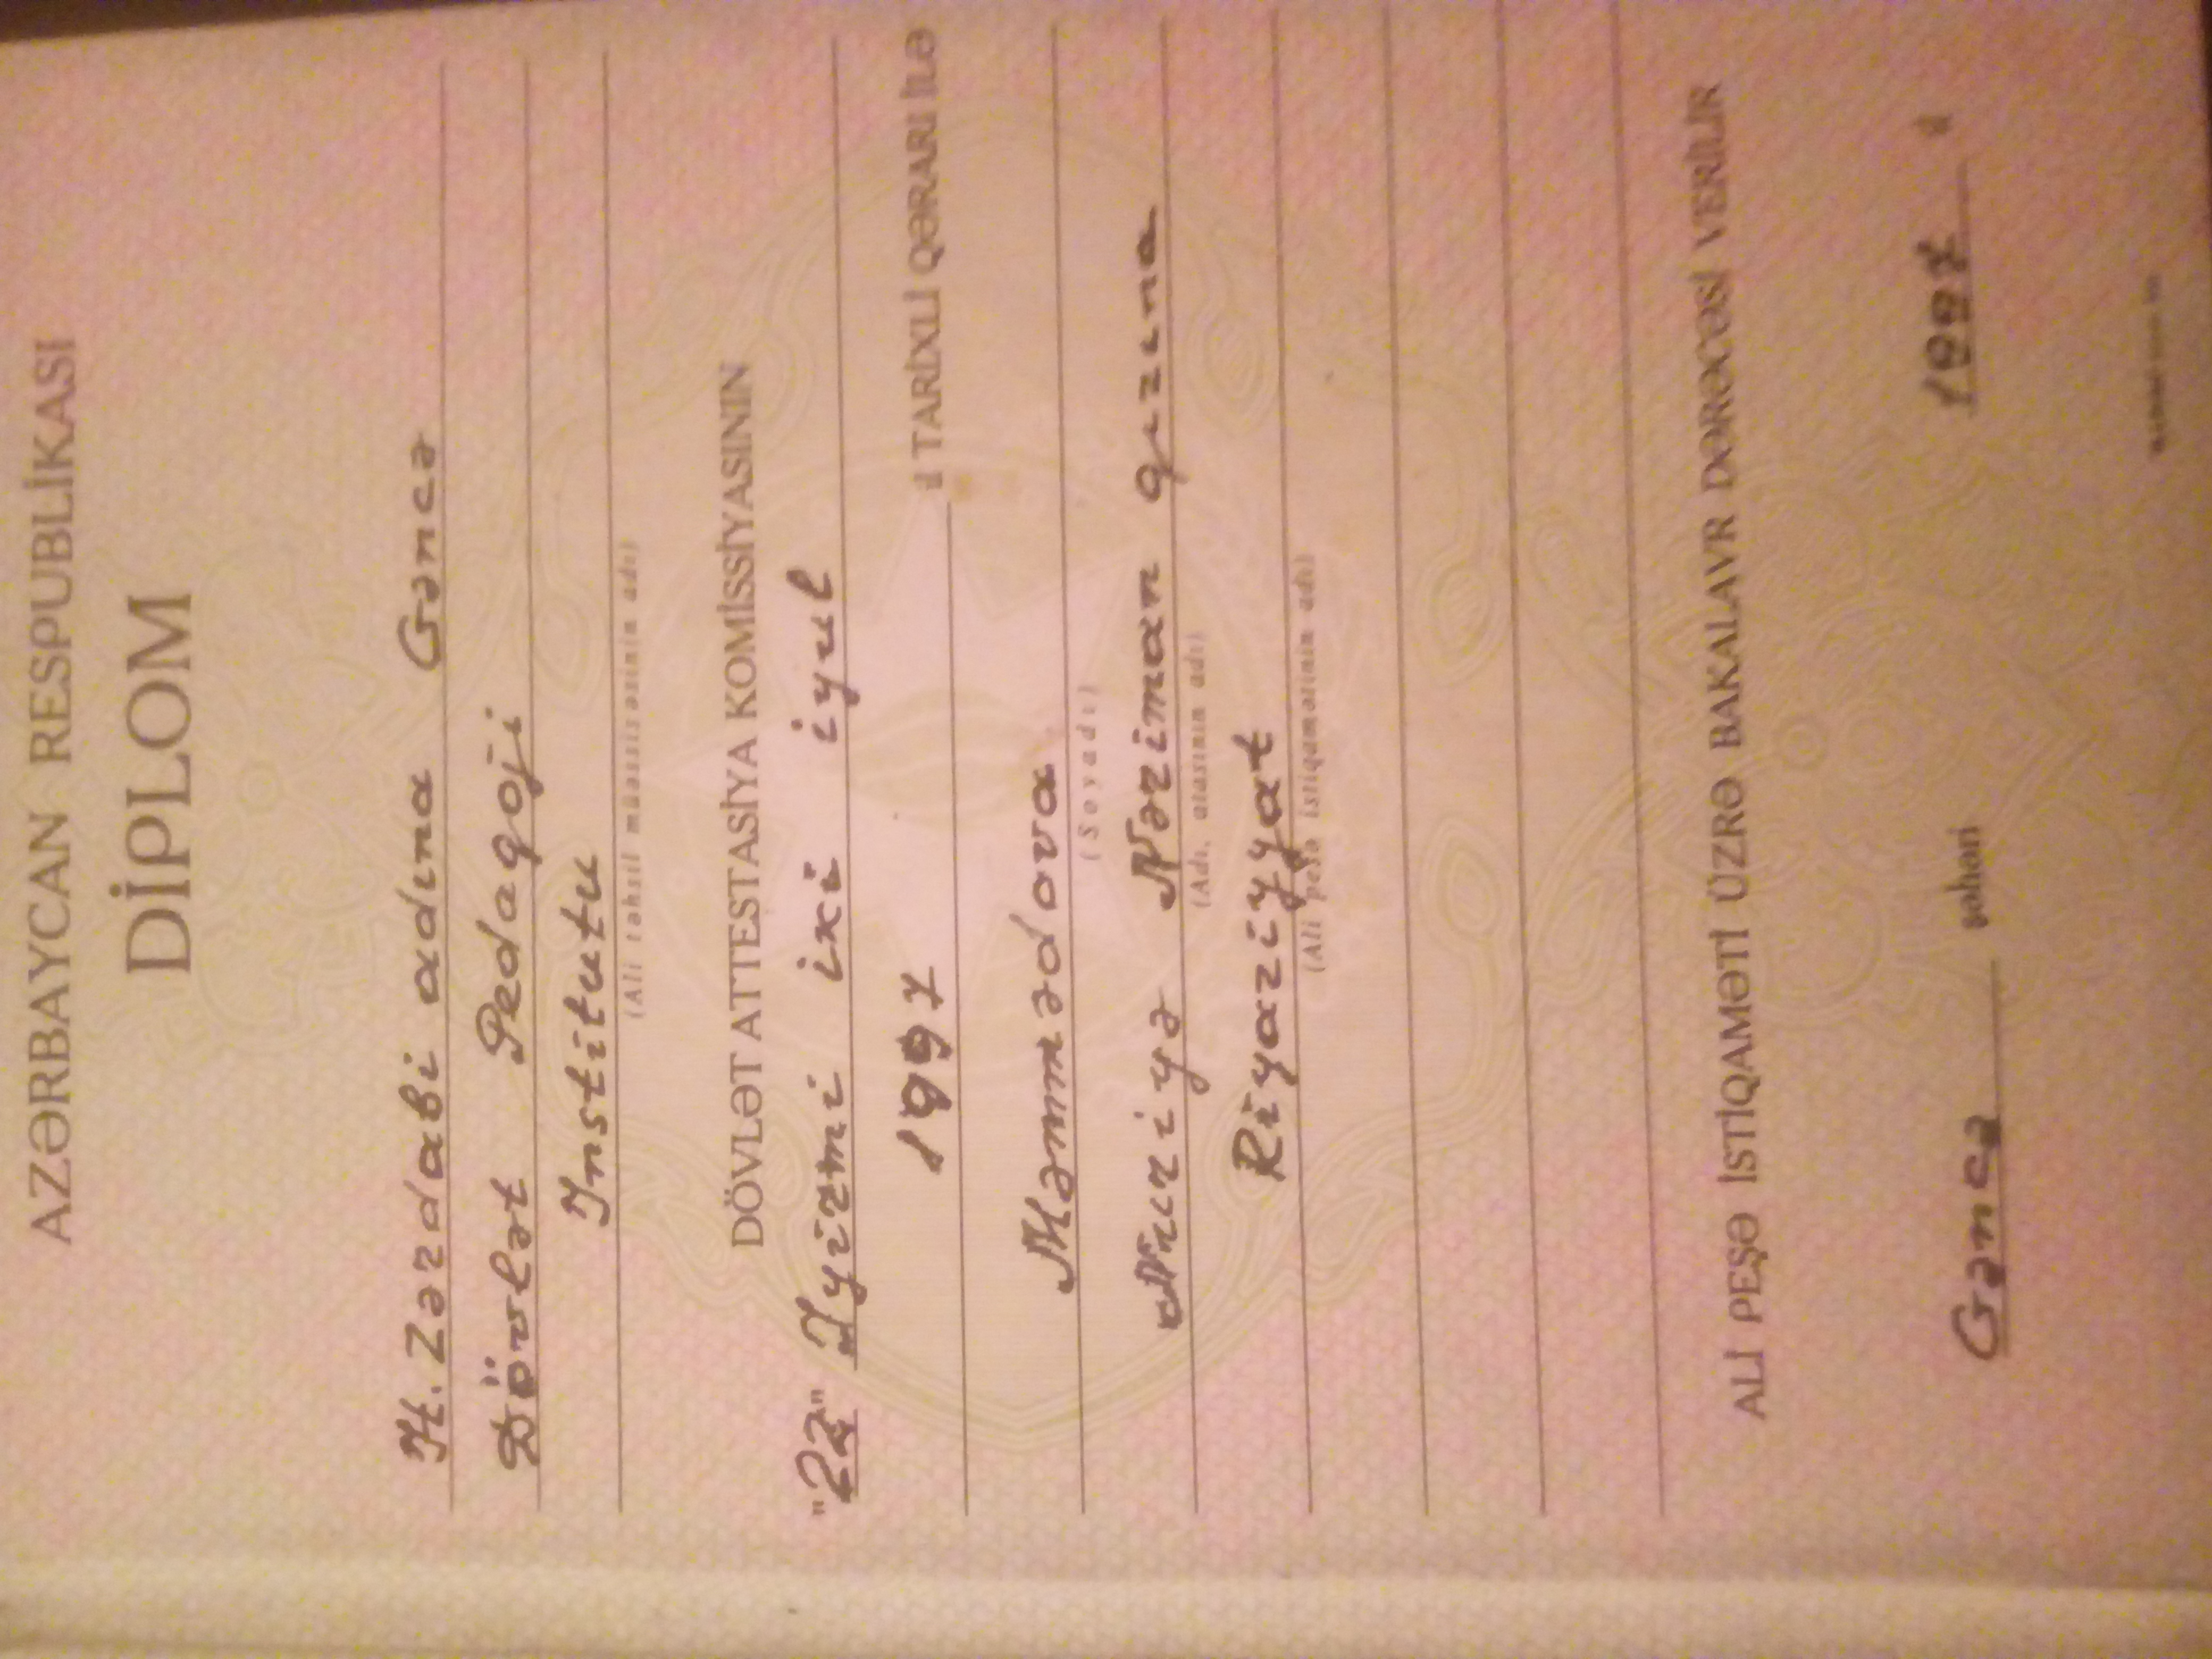 AZƏRBAYCAN RESPUBLİKASI
DİPLOM
H. Zərdabi adına Gəncə
Dövlət Pedaqoji
İnstitutu
(Ali təhsil müəssisəsinin adı)
DÖVLƏT ATTESTASİYA KOMİSSİYASININ
"22" İyirmi iki iyul
1997 il TARİXLİ QƏRARI İLƏ
Məmmədova
(Soyadı)
Nuriyə Nəriman qızına
(Adı, atasının adı)
Riyaziyyat
(Ali peşə istiqamətinin adı)
ALİ PEŞƏ İSTİQAMƏTİ ÜZRƏ BAKALAVR DƏRƏCƏSİ VERİLİR
Gəncə şəhəri 1997 il